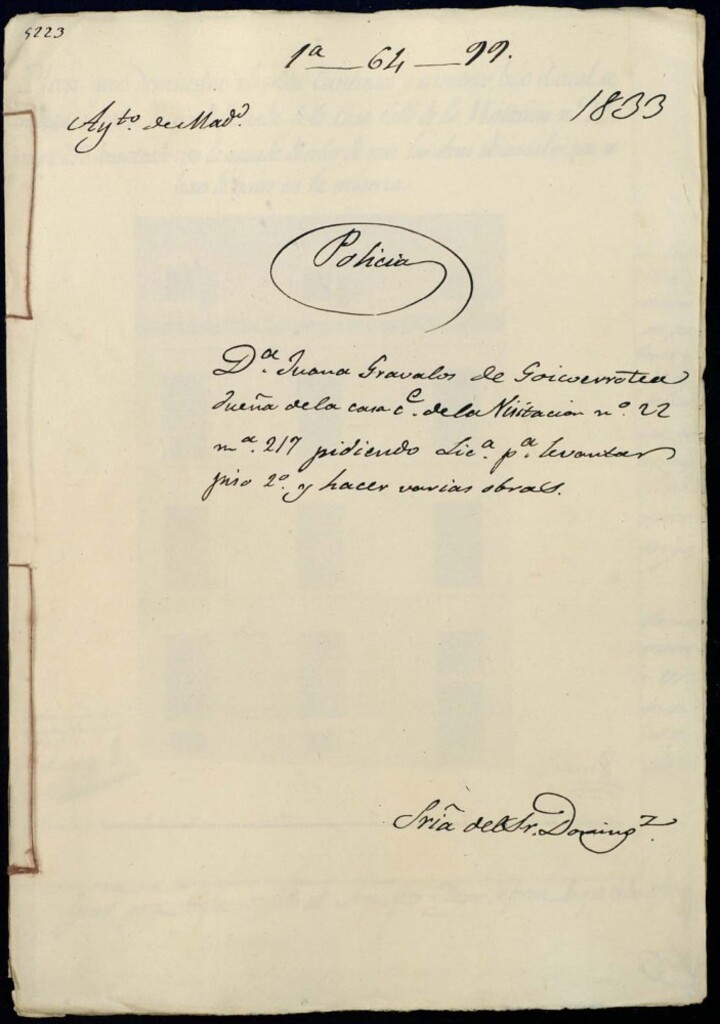 5223
1ª — 64 — 99.
Ayto. de Madd.
1833
Policia
Dª. Juana Gravalos de Goicoerrotea
dueña de la casa Ce. de la Visitacion nº. 22
mª. 217 pidiendo Licª. pª. levantar
piso 2º. y hacer varias obras.
Sria del Sr. Domingz.